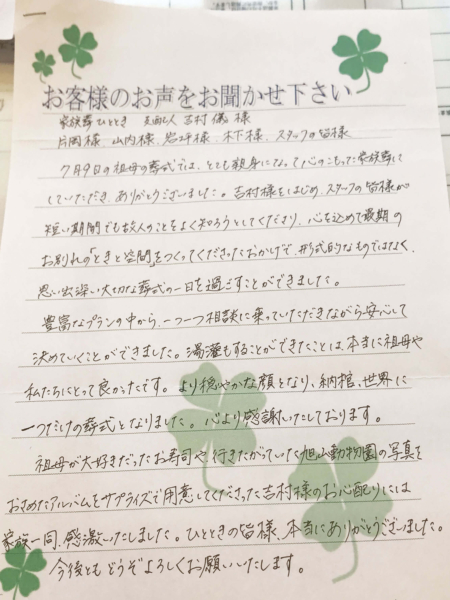 お客様のお声をお聞かせ下さい
家族葬ひととき 支配人 吉村 様
片岡様 山内様 岩坪様 木下様 スタッフの皆様
7月9日の祖母の葬式では、とても親身になって心のこもった家族葬に
していただき、ありがとうございました。吉村様をはじめ、スタッフの皆様が
短い期間でも故人のことをよく知ろうとしてくださり、心を込めて最期の
お別れの「ときと空間」をつくってくださったおかげで、形式的なものではなく、
思い出深い大切な葬式の一日を過ごすことができました。
豊富なプランの中から、一つ一つ相談に乗っていただきながら安心して
決めていくことができました。湯灌もすることができたことは、本当に祖母や
私たちにとって良かったです。より穏やかな顔となり、納棺、世界に
一つだけの葬式となりました。心より感謝いたしております。
祖母が大好きだったお寿司や、行きたがっていた旭山動物園の写真を
おさめたアルバムをサプライズで用意してくださった吉村様のお心配りには
家族一同、感激いたしました。ひとときの皆様、本当にありがとうございました。
今後ともどうぞよろしくお願いいたします。